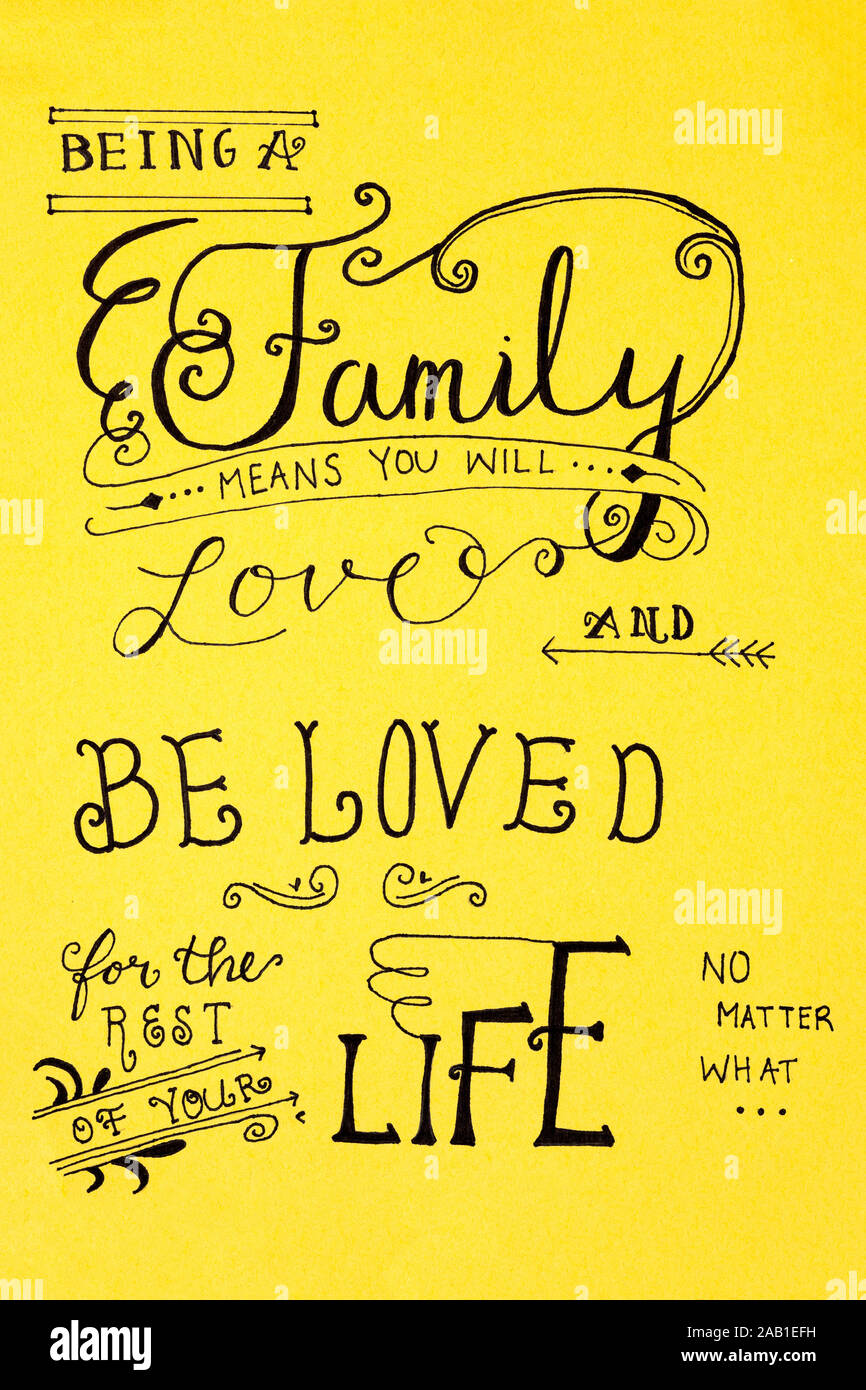 BEING A
Family
... MEANS YOU WILL ...
Love
AND
BE LOVED
for the
REST
OF YOUR
LIFE
NO
MATTER
WHAT
...
alamy
Image ID: 2AB1EFH
www.alamy.com